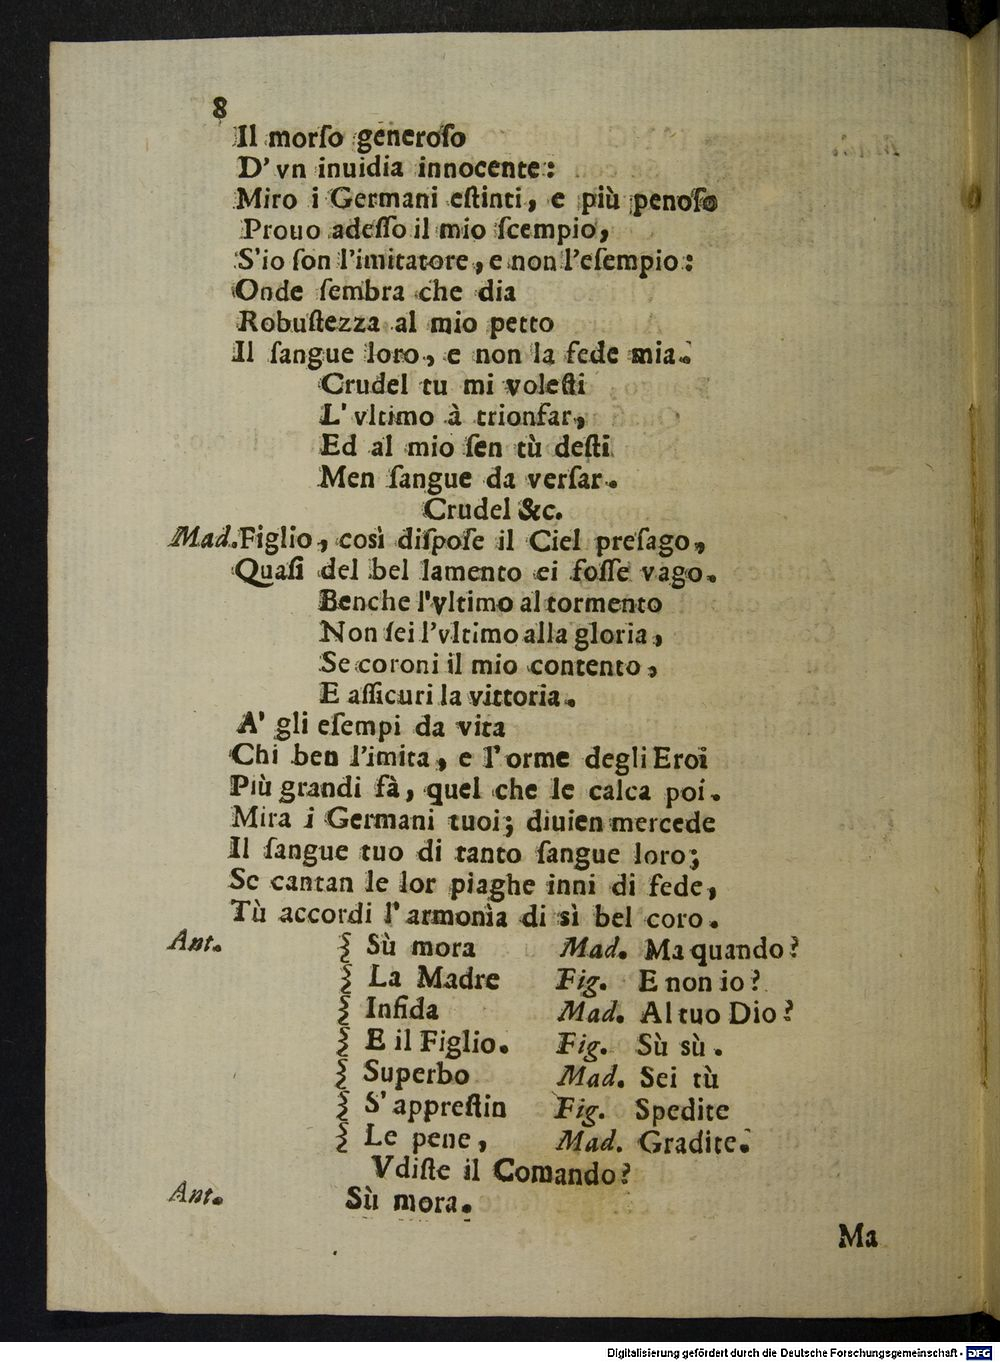 8
Il morſo generoſo
D' vn inuidia innocente:
Miro i Germani eſtinti, e più penoſo
Prouo adeſſo il mio ſcempio,
S'io ſon l'imitatore, e non l'eſempio:
Onde ſembra che dia
Robuſtezza al mio petto
Il ſangue loro, e non la fede mia.
Crudel tu mi voleſti
L' vltimo à trionfar,
Ed al mio ſen tù deſti
Men ſangue da verſar.
Crudel &c.
Mad. Figlio, così diſpoſe il Ciel preſago,
Quaſi del bel lamento ei foſſe vago.
Benche l'vltimo al tormento
Non ſei l'vltimo alla gloria,
Se coroni il mio contento,
E aſſicuri la vittoria.
A' gli eſempi da vita
Chi ben l'imita, e l'orme degli Eroi
Più grandi fà, quel che le calca poi.
Mira i Germani tuoi; diuien mercede
Il ſangue tuo di tanto ſangue loro;
Se cantan le lor piaghe inni di fede,
Tù accordi l'armonìa di sì bel coro.
Ant. Sù mora Mad. Ma quando?
La Madre Fig. E non io?
Infida Mad. Al tuo Dio?
E il Figlio. Fig. Sù sù.
Superbo Mad. Sei tù
S' appreſtin Fig. Spedite
Le pene, Mad. Gradite.
Vdiſte il Comando?
Ant. Sù mora.
Ma
Digitalisierung gefördert durch die Deutsche Forschungsgemeinschaft - DFG